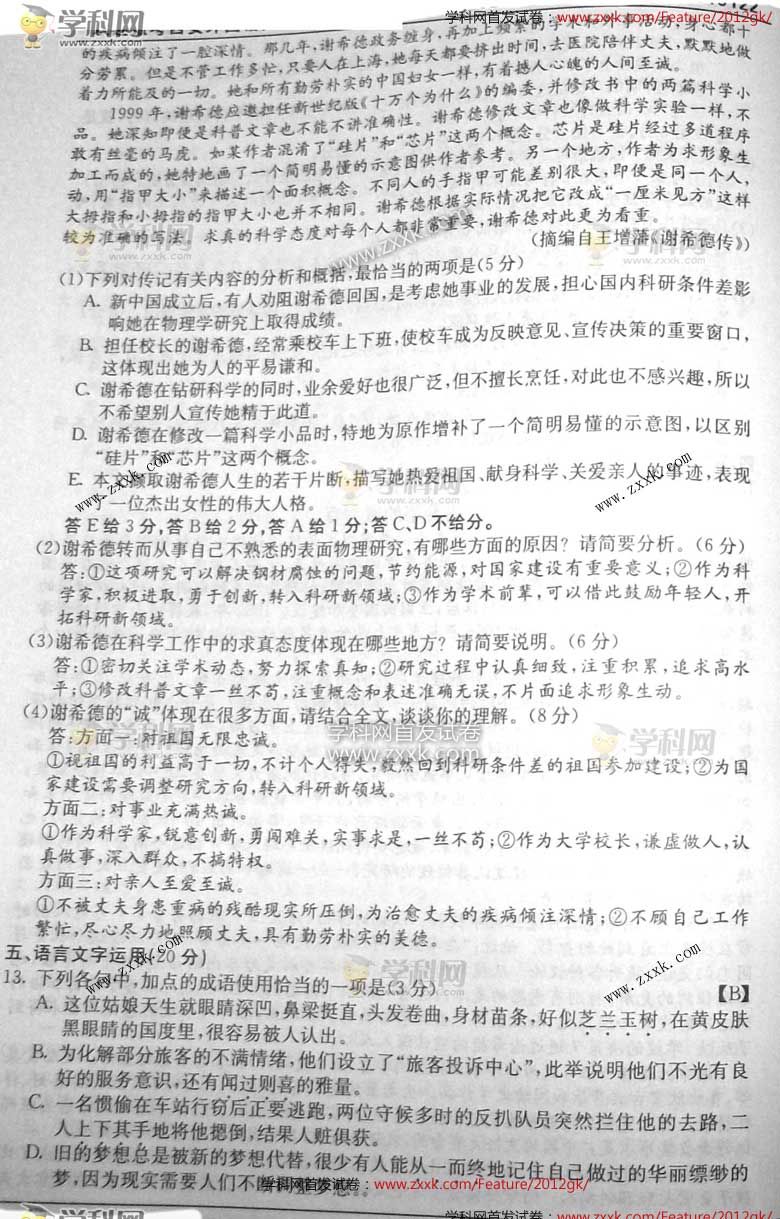 学科网首发试卷：www.zxxk.com/Feature/2012gk/
的疾病倾注了一腔深情。那几年，谢希德政务缠身，再加上频繁的学术和外事活动，身心都十
分劳累。但是不管工作多忙，只要人在上海，她每天都要挤出时间，去医院陪伴丈夫，默默地做
着力所能及的一切。她和所有勤劳朴实的中国妇女一样，有着撼人心魄的人间至诚。
1999年，谢希德应邀担任新世纪版《十万个为什么》的编委，并修改书中的两篇科学小
品。她深知即便是科普文章也不能不讲准确性。谢希德修改文章也像做科学实验一样，不
敢有丝毫的马虎。如某作者混淆了“硅片”和“芯片”这两个概念。芯片是硅片经过多道程序
加工而成的，她特地画了一个简明易懂的示意图供作者参考。另一个地方，作者为求形象生
动，用“指甲大小”来描述一个面积概念。不同人的手指甲可能差别很大，即便是同一个人，
大拇指和小拇指的指甲大小也并不相同。谢希德根据实际情况把它改成“一厘米见方”这样
较为准确的写法。求真的科学态度对每个人都非常重要，谢希德对此更为看重。
（摘编自王增藩《谢希德传》）
(1)下列对传记有关内容的分析和概括，最恰当的两项是(5分)
A. 新中国成立后，有人劝阻谢希德回国，是考虑她事业的发展，担心国内科研条件差影
响她在物理学研究上取得成绩。
B. 担任校长的谢希德，经常乘校车上下班，使校车成为反映意见、宣传决策的重要窗口，
这体现出她为人的平易谦和。
C. 谢希德在钻研科学的同时，业余爱好也很广泛，但不擅长烹饪，对此也不感兴趣，所以
不希望别人宣传她精于此道。
D. 谢希德在修改一篇科学小品时，特地为原作增补了一个简明易懂的示意图，以区别
“硅片”和“芯片”这两个概念。
E. 本文撷取谢希德人生的若干片断，描写她热爱祖国、献身科学、关爱亲人的事迹，表现
了一位杰出女性的伟大人格。
答E给3分，答B给2分，答A给1分；答C、D不给分。
(2)谢希德转而从事自己不熟悉的表面物理研究，有哪些方面的原因？请简要分析。(6分)
答：①这项研究可以解决钢材腐蚀的问题，节约能源，对国家建设有重要意义；②作为科
学家，积极进取，勇于创新，转入科研新领域；③作为学术前辈，可以借此鼓励年轻人，开
拓科研新领域。
(3)谢希德在科学工作中的求真态度体现在哪些地方？请简要说明。(6分)
答：①密切关注学术动态，努力探索真知；②研究过程中认真细致，注重积累，追求高水
平；③修改科普文章一丝不苟，注重概念和表述准确无误，不片面追求形象生动。
(4)谢希德的“诚”体现在很多方面，请结合全文，谈谈你的理解。(8分)
答：方面一：对祖国无限忠诚。
①视祖国的利益高于一切，不计个人得失，毅然回到科研条件差的祖国参加建设；②为国
家建设需要调整研究方向，转入科研新领域。
方面二：对事业充满热诚。
①作为科学家，锐意创新，勇闯难关，实事求是，一丝不苟；②作为大学校长，谦虚做人，认
真做事，深入群众，不搞特权。
方面三：对亲人至爱至诚。
①不被丈夫身患重病的残酷现实所压倒，为治愈丈夫的疾病倾注深情；②不顾自己工作
繁忙，尽心尽力地照顾丈夫，具有勤劳朴实的美德。
五、语言文字运用(20分)
13. 下列各句中，加点的成语使用恰当的一项是(3分) 【B】
A. 这位姑娘天生就眼睛深凹，鼻梁挺直，头发卷曲，身材苗条，好似芝兰玉树，在黄皮肤
黑眼睛的国度里，很容易被人认出。
B. 为化解部分旅客的不满情绪，他们设立了“旅客投诉中心”，此举说明他们不光有良
好的服务意识，还有闻过则喜的雅量。
C. 一名惯偷在车站行窃后正要逃跑，两位守候多时的反扒队员突然拦住他的去路，二
人上下其手地将他摁倒，结果人赃俱获。
D. 旧的梦想总是被新的梦想代替，很少有人能从一而终地记住自己做过的华丽缥缈的
梦，因为现实需要人们不断
学科网首发试卷：www.zxxk.com/Feature/2012gk/